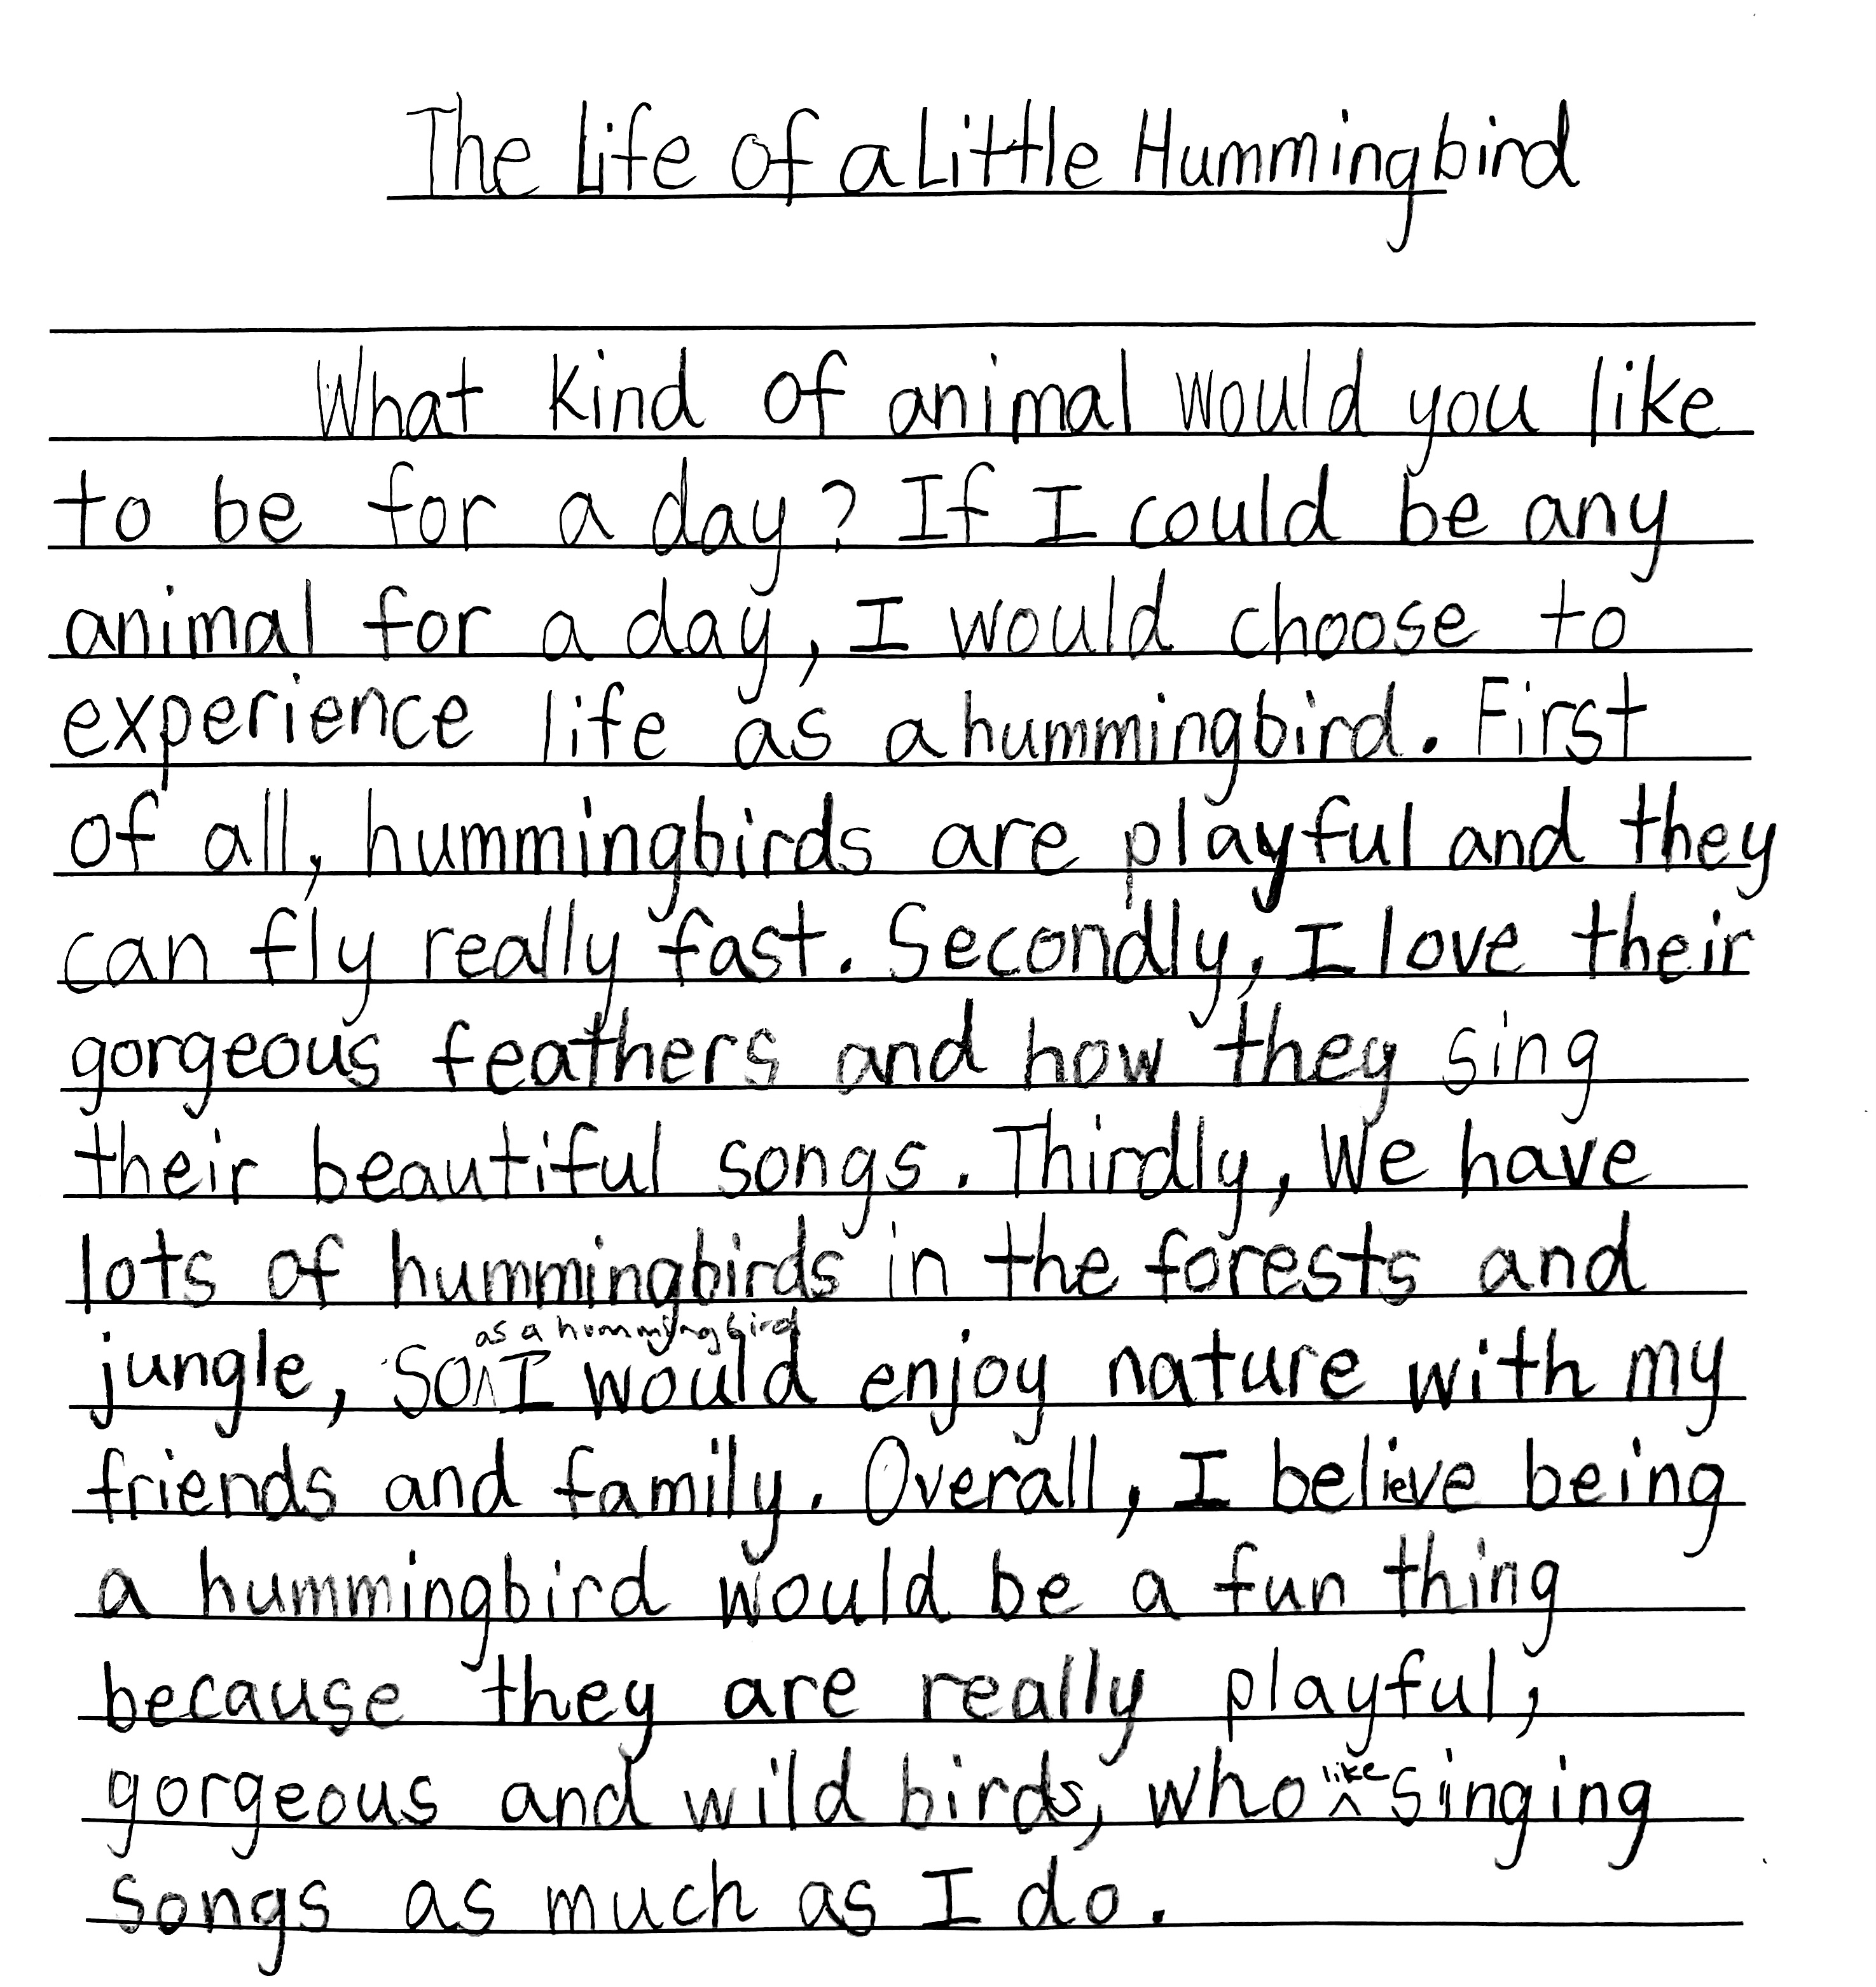 The Life of a Little Hummingbird
What kind of animal would you like
to be for a day? If I could be any
animal for a day, I would choose to
experience life as a hummingbird. First
of all, hummingbirds are playful and they
can fly really fast. Secondly, I love their
gorgeous feathers and how they sing
their beautiful songs. Thirdly, We have
lots of hummingbirds in the forests and
as a hummingbird
jungle, so^I would enjoy nature with my
friends and family. Overall, I believe being
a hummingbird would be a fun thing
because they are really playful,
like
gorgeous and wild birds, who^singing
songs as much as I do.